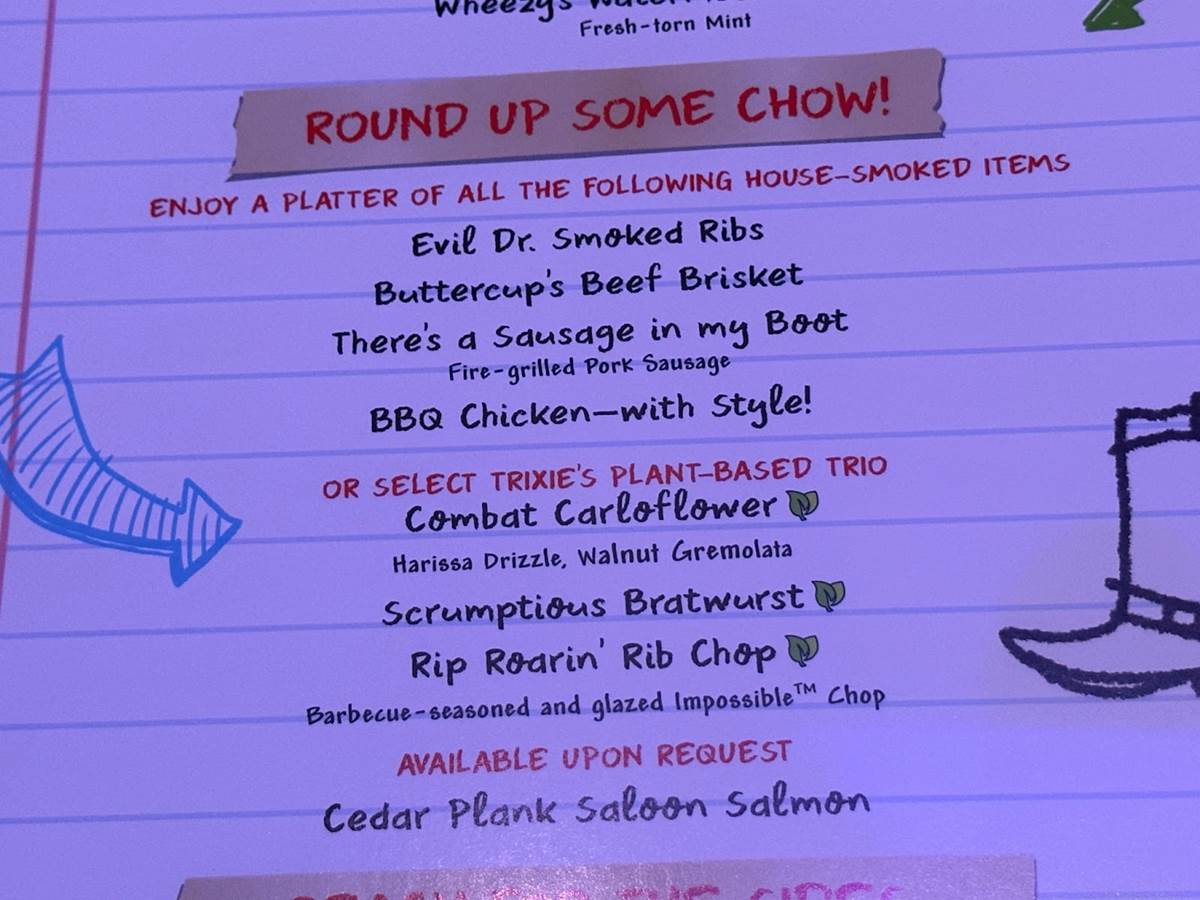 Wheezy's
Fresh-torn Mint
ROUND UP SOME CHOW!
ENJOY A PLATTER OF ALL THE FOLLOWING HOUSE-SMOKED ITEMS
Evil Dr. Smoked Ribs
Buttercup's Beef Brisket
There's a Sausage in my Boot
Fire-grilled Pork Sausage
BBQ Chicken—with Style!
OR SELECT TRIXIE'S PLANT-BASED TRIO
Combat Carloflower
Harissa Drizzle, Walnut Gremolata
Scrumptious Bratwurst
Rip Roarin' Rib Chop
Barbecue-seasoned and glazed Impossible™ Chop
AVAILABLE UPON REQUEST
Cedar Plank Saloon Salmon